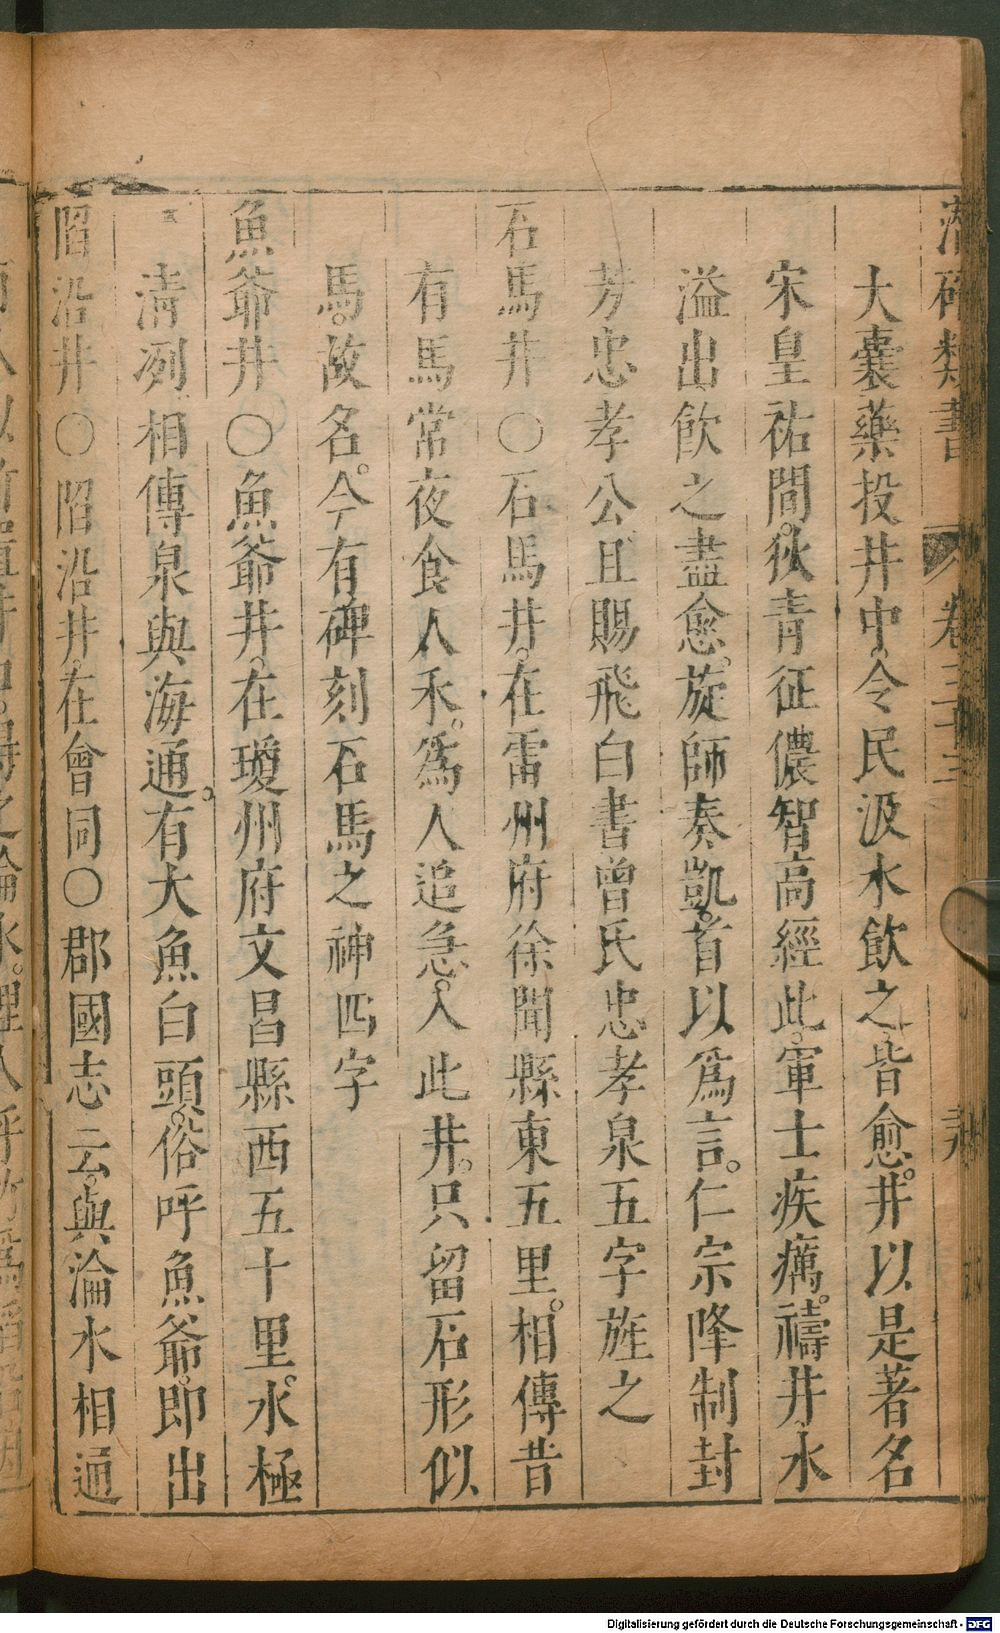 潛確類書 卷三十三
大囊藥投井中。令民汲水飲之。皆愈。井以是著名
宋皇祐間。狄青征儂智高經此。軍士疾癘。禱井。水
溢出飲之盡愈。旋師奏凱。首以爲言。仁宗降制封
芳忠孝公。且賜飛白書曾氏忠孝泉五字旌之
石馬井〇石馬井。在雷州府徐聞縣東五里。相傳昔
有馬常夜食人禾。爲人追急。入此井。只留石形似
馬。故名。今有碑刻石馬之神四字
魚爺井〇魚爺井。在瓊州府文昌縣西五十里。水極
清冽相傳泉與海通。有大魚白頭。俗呼魚爺。即出
陷沿井〇陷沿井。在會同〇郡國志云。與淪水相通
Digitalisierung gefördert durch die Deutsche Forschungsgemeinschaft - DFG